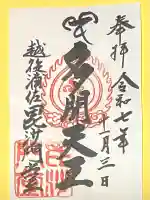 奉拝 令和七年
十一月三日
多聞天王
越後浦佐
毘沙門堂